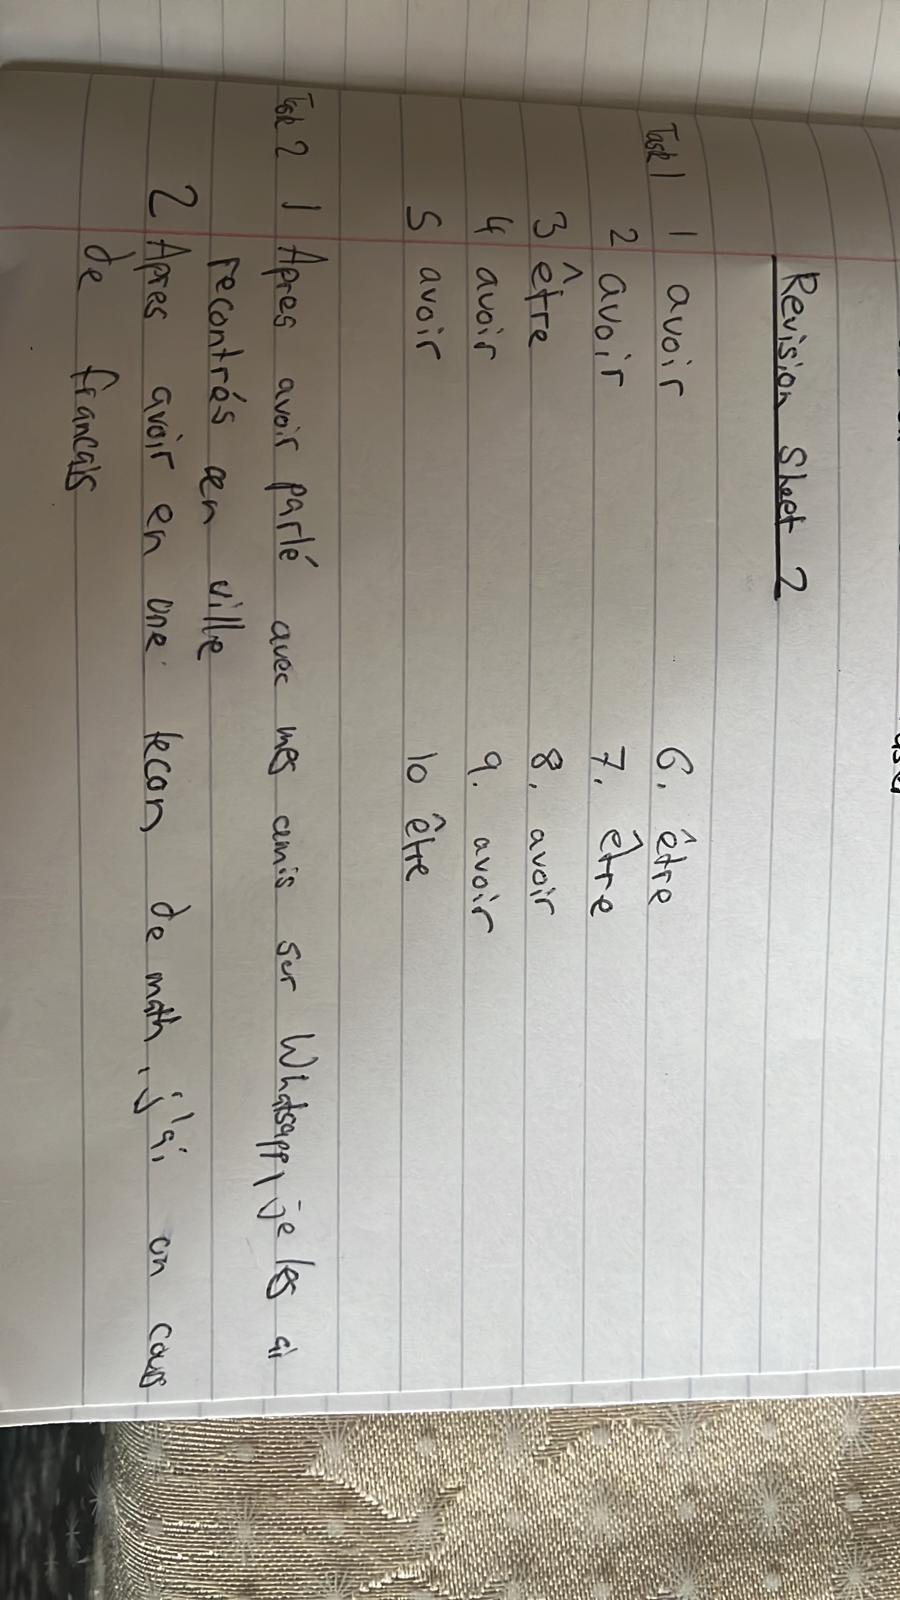 Revision Sheet 2
Task 1 1 avoir 6. être
2 avoir 7. être
3 être 8. avoir
4 avoir 9. avoir
5 avoir 10 être
Task 2 1 Apres avoir parlé avec mes amis sur Whatsapp, je les ai
recontrés en ville
2 Apres avoir en une lecon de math, j'ai un cours
de francais